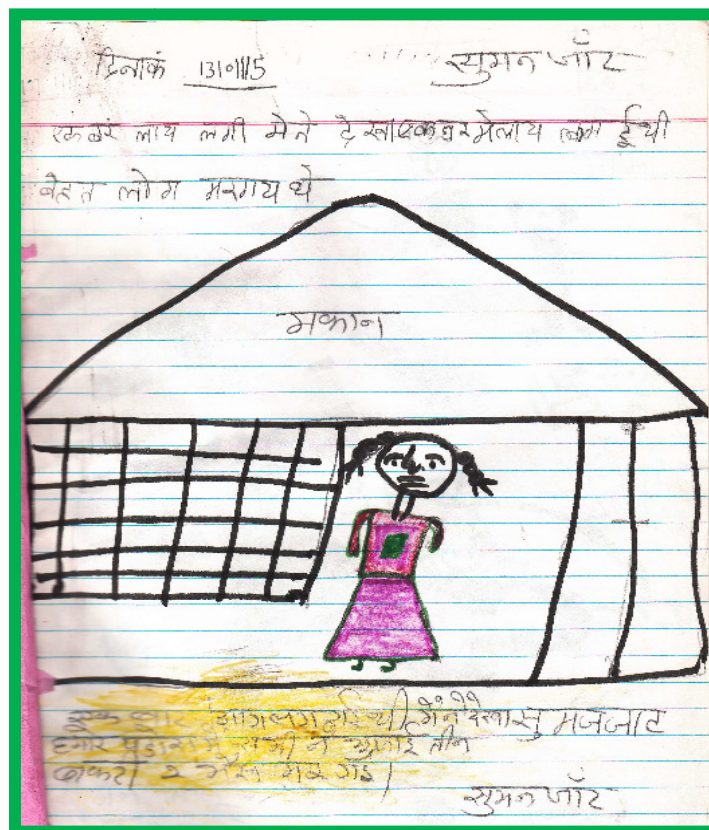 दिनाकं 13।०1।15 सुमन जॉट
एक बर लाय लगी मेने देखा एक घर मे लाय लग ईू थी
बेहत लोग मरगय थे
मकान
एक बार आग लग हुई थी मेने देखा सुमन जाट
हमार पडोस मे सभी ने भुजाई तीन
बाकरा 2 भेस मर गई।
सुमन जॉट